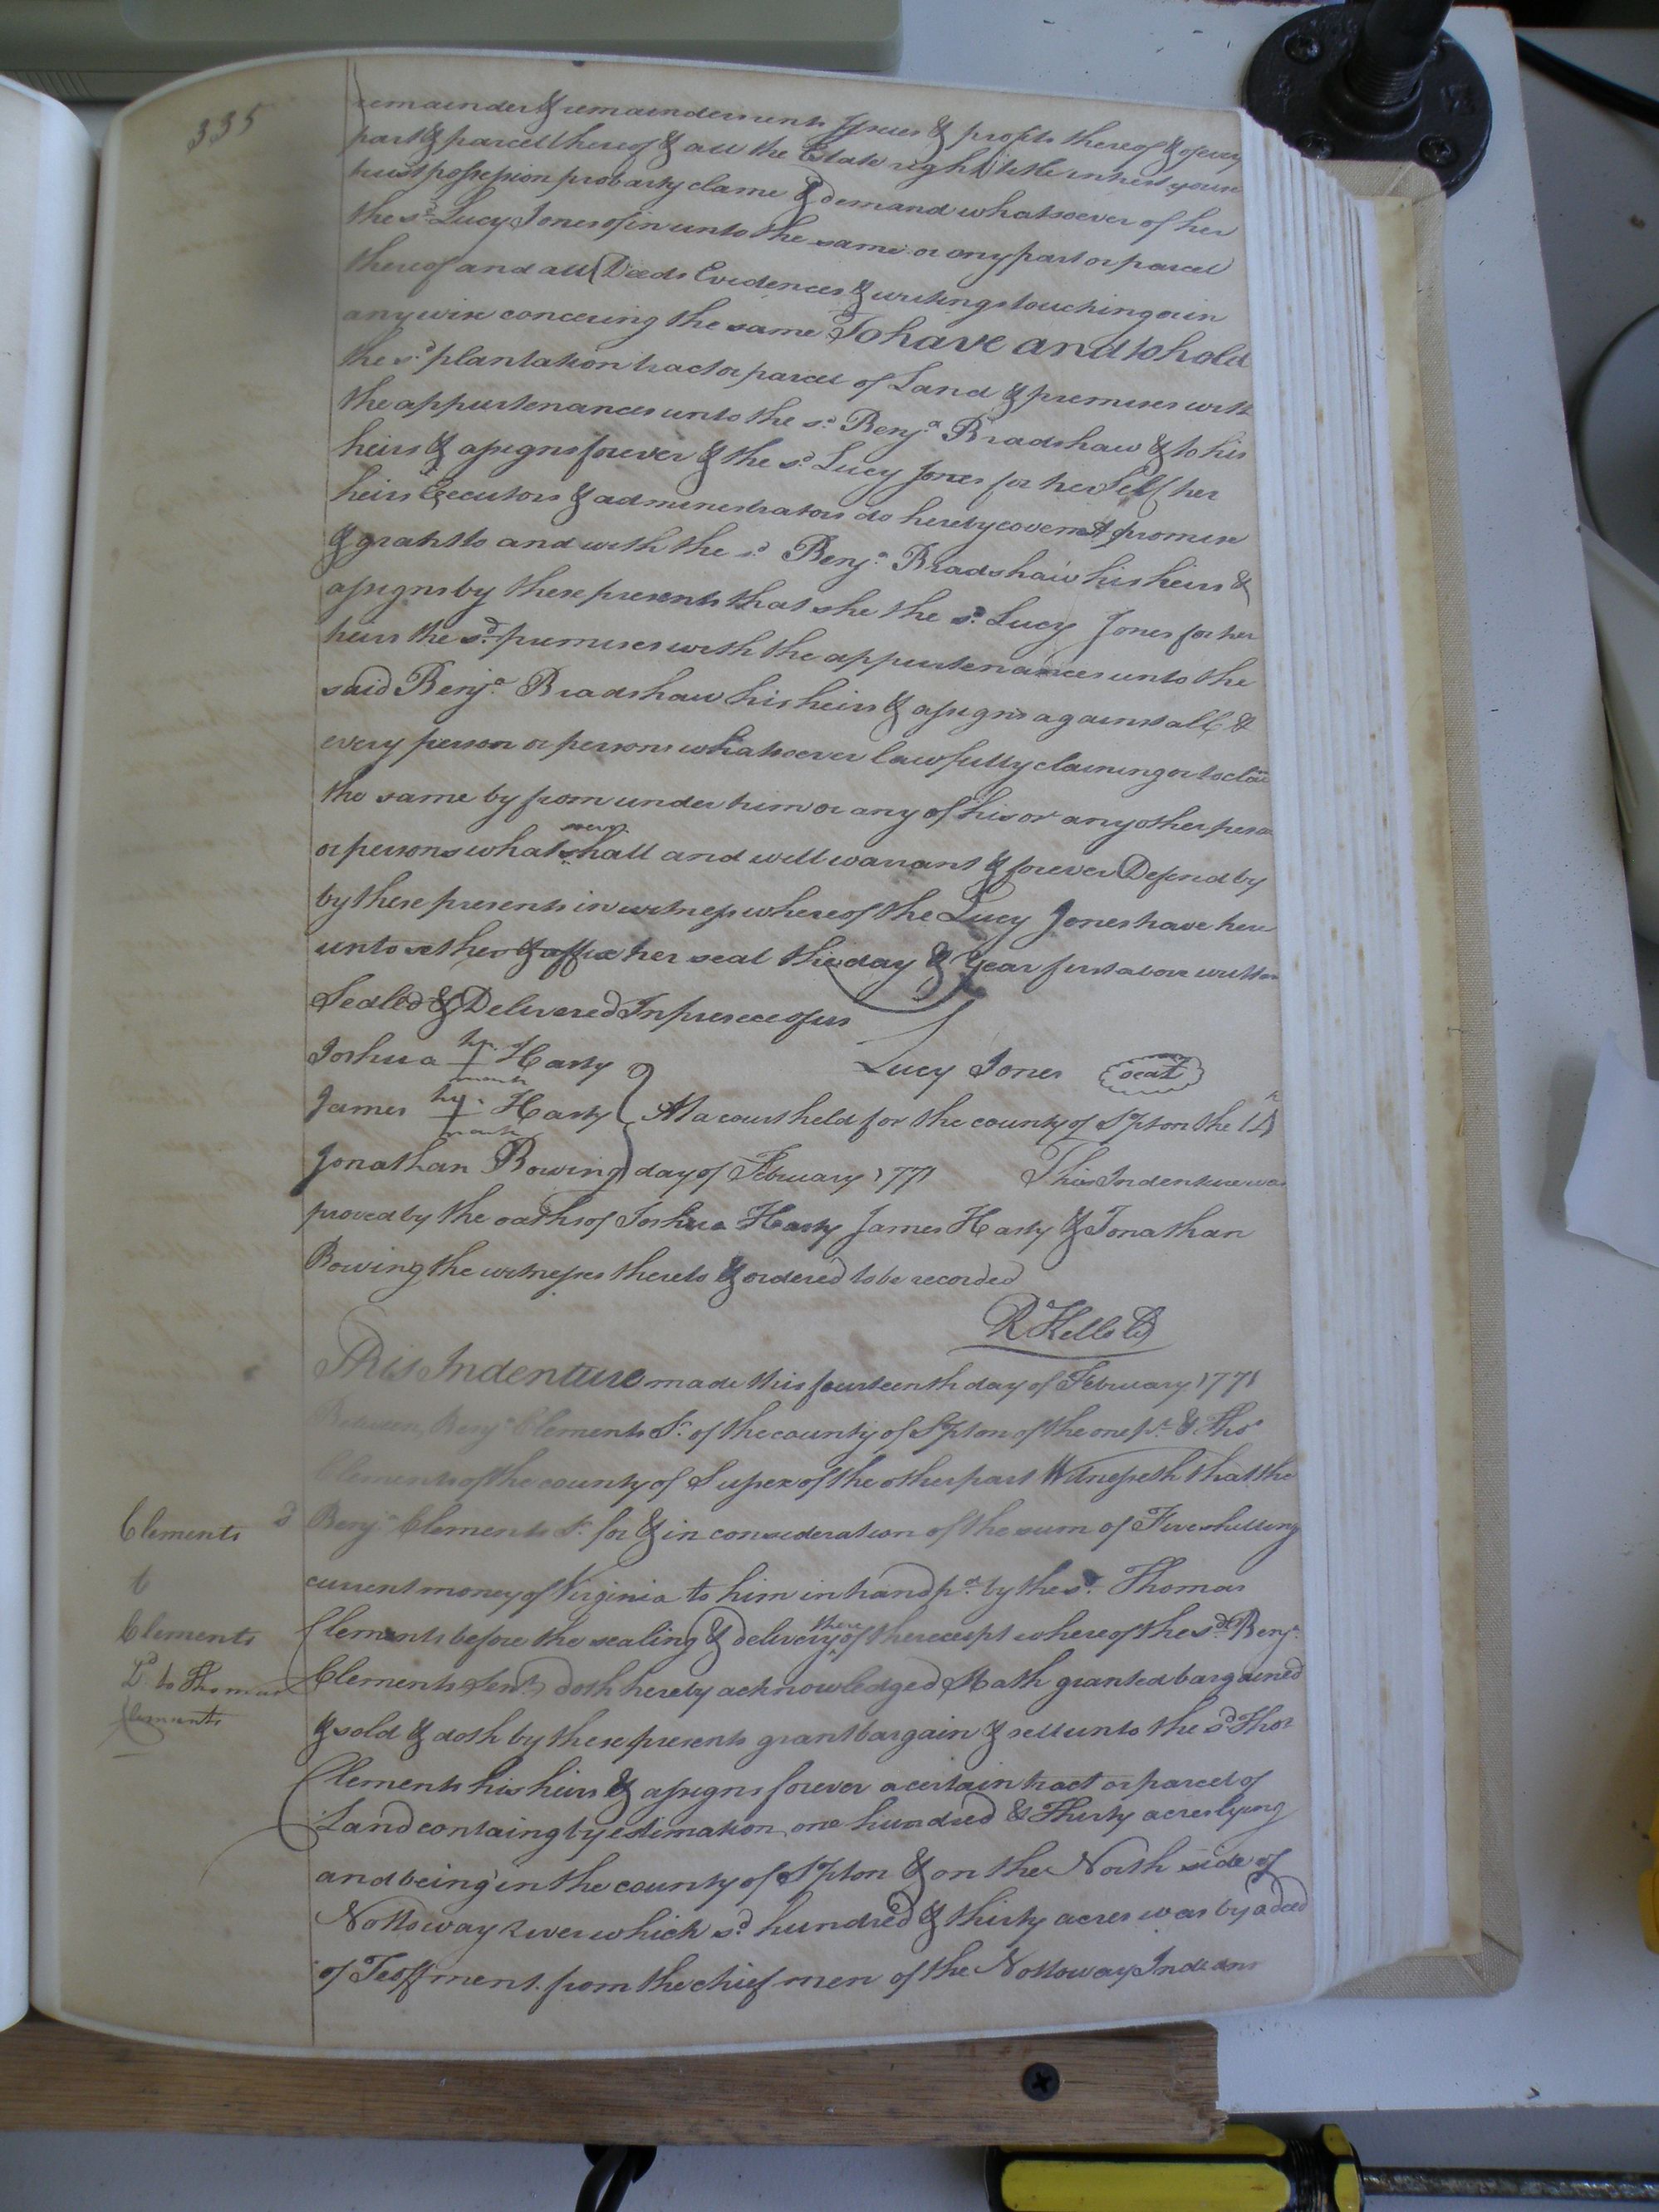 335
remainder & remainderments Issues & profits thereof & of every
part & parcell thereof & all the Estate right title intrest
trust possession probarty clame & demand whatsoever of her
the sd. Lucy Jones of in unto the same or any part or parcel
thereof and all Deeds Evidences & writings touching or in
any wise concering the same To have and to hold
the sd. plantation tract or parcel of Land & premises with
the appurtenances unto the sd. Benja. Bradshaw & to his
heirs & assigns forever & the sd. Lucy Jones for her self her
heirs Executors & administrators do hereby covenat promise
& grant to and with the sd. Benja. Bradshaw his heirs &
assigns by these presents that she the sd. Lucy Jones for her
heirs the sd. premises with the appurtenances unto the
said Benja. Bradshaw his heirs & assigns against all &
every person or persons whatsoever lawfully claiming or to clai
the same by from under him or any of his or any other person
or persons whatsoever shall and will warrant & forever Defend by
by these presents in witness whereof the Lucy Jones have here
unto set her & affix her seal the day & Year first above written
Sealed & Delivered In presece of us
Joshua his + mark Harty
Lucy Jones seal
James his + mark Harty At a court held for the county of S'pton the 14th
Jonathan Bowing day of February 1771 This Indenture was
proved by the oaths of Joshua Harty James Harty & Jonathan
Bowing the witnesses thereto & ordered to be recorded
R Kello
This Indenture made this fourteenth day of February 1771
Between Benja. Clements Sr. of the county of S'pton of the one pt. & Thos
Clements of the county of Sussex of the other part Witnesseth that the
Clements
sd Benja. Clements Sr. for & in consideration of the sum of Five shilling
t
current money of Virginia to him in hand pd. by the sd. Thomas
Clements
Clements before the sealing & delivery thereof the receipt whereof the sd. Benja.
Dd. to Thomas
Clements Senr. doth hereby acknowledged Hath granted bargained
Clements
& sold & doth by these presents grant bargain & sell unto the sd. Thos
Clements his heirs & assigns forever a certain tract or parcel of
Land containg by estimation one hundred & Thirty acres lying
and being in the county of S'pton & on the North side of
Nottoway River which sd. hundred & thirty acres was by a deed
of Feoffment from the chief men of the Nottoway Indeans